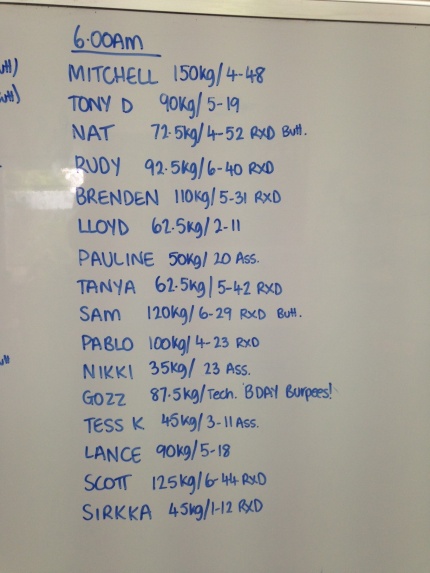 6:00AM
MITCHELL 150kg/4-48
TONY D 90kg/5-19
NAT 72.5kg/4-52 RXD Butt.
RUDY 92.5kg/6-40 RXD
BRENDEN 110kg/5-31 RXD
LLOYD 62.5kg/2-11
PAULINE 50kg/20 Ass.
TANYA 62.5kg/5-42 RXD
SAM 120kg/6-29 RXD Butt.
PABLO 100kg/4-23 RXD
NIKKI 35kg/23 Ass.
GOZZ 87.5kg/Tech. BDAY Burpees!
TESS K 45kg/3-11 Ass.
LANCE 90kg/5-18
SCOTT 125kg/6-44 RXD
SIRKKA 45kg/1-12 RXD